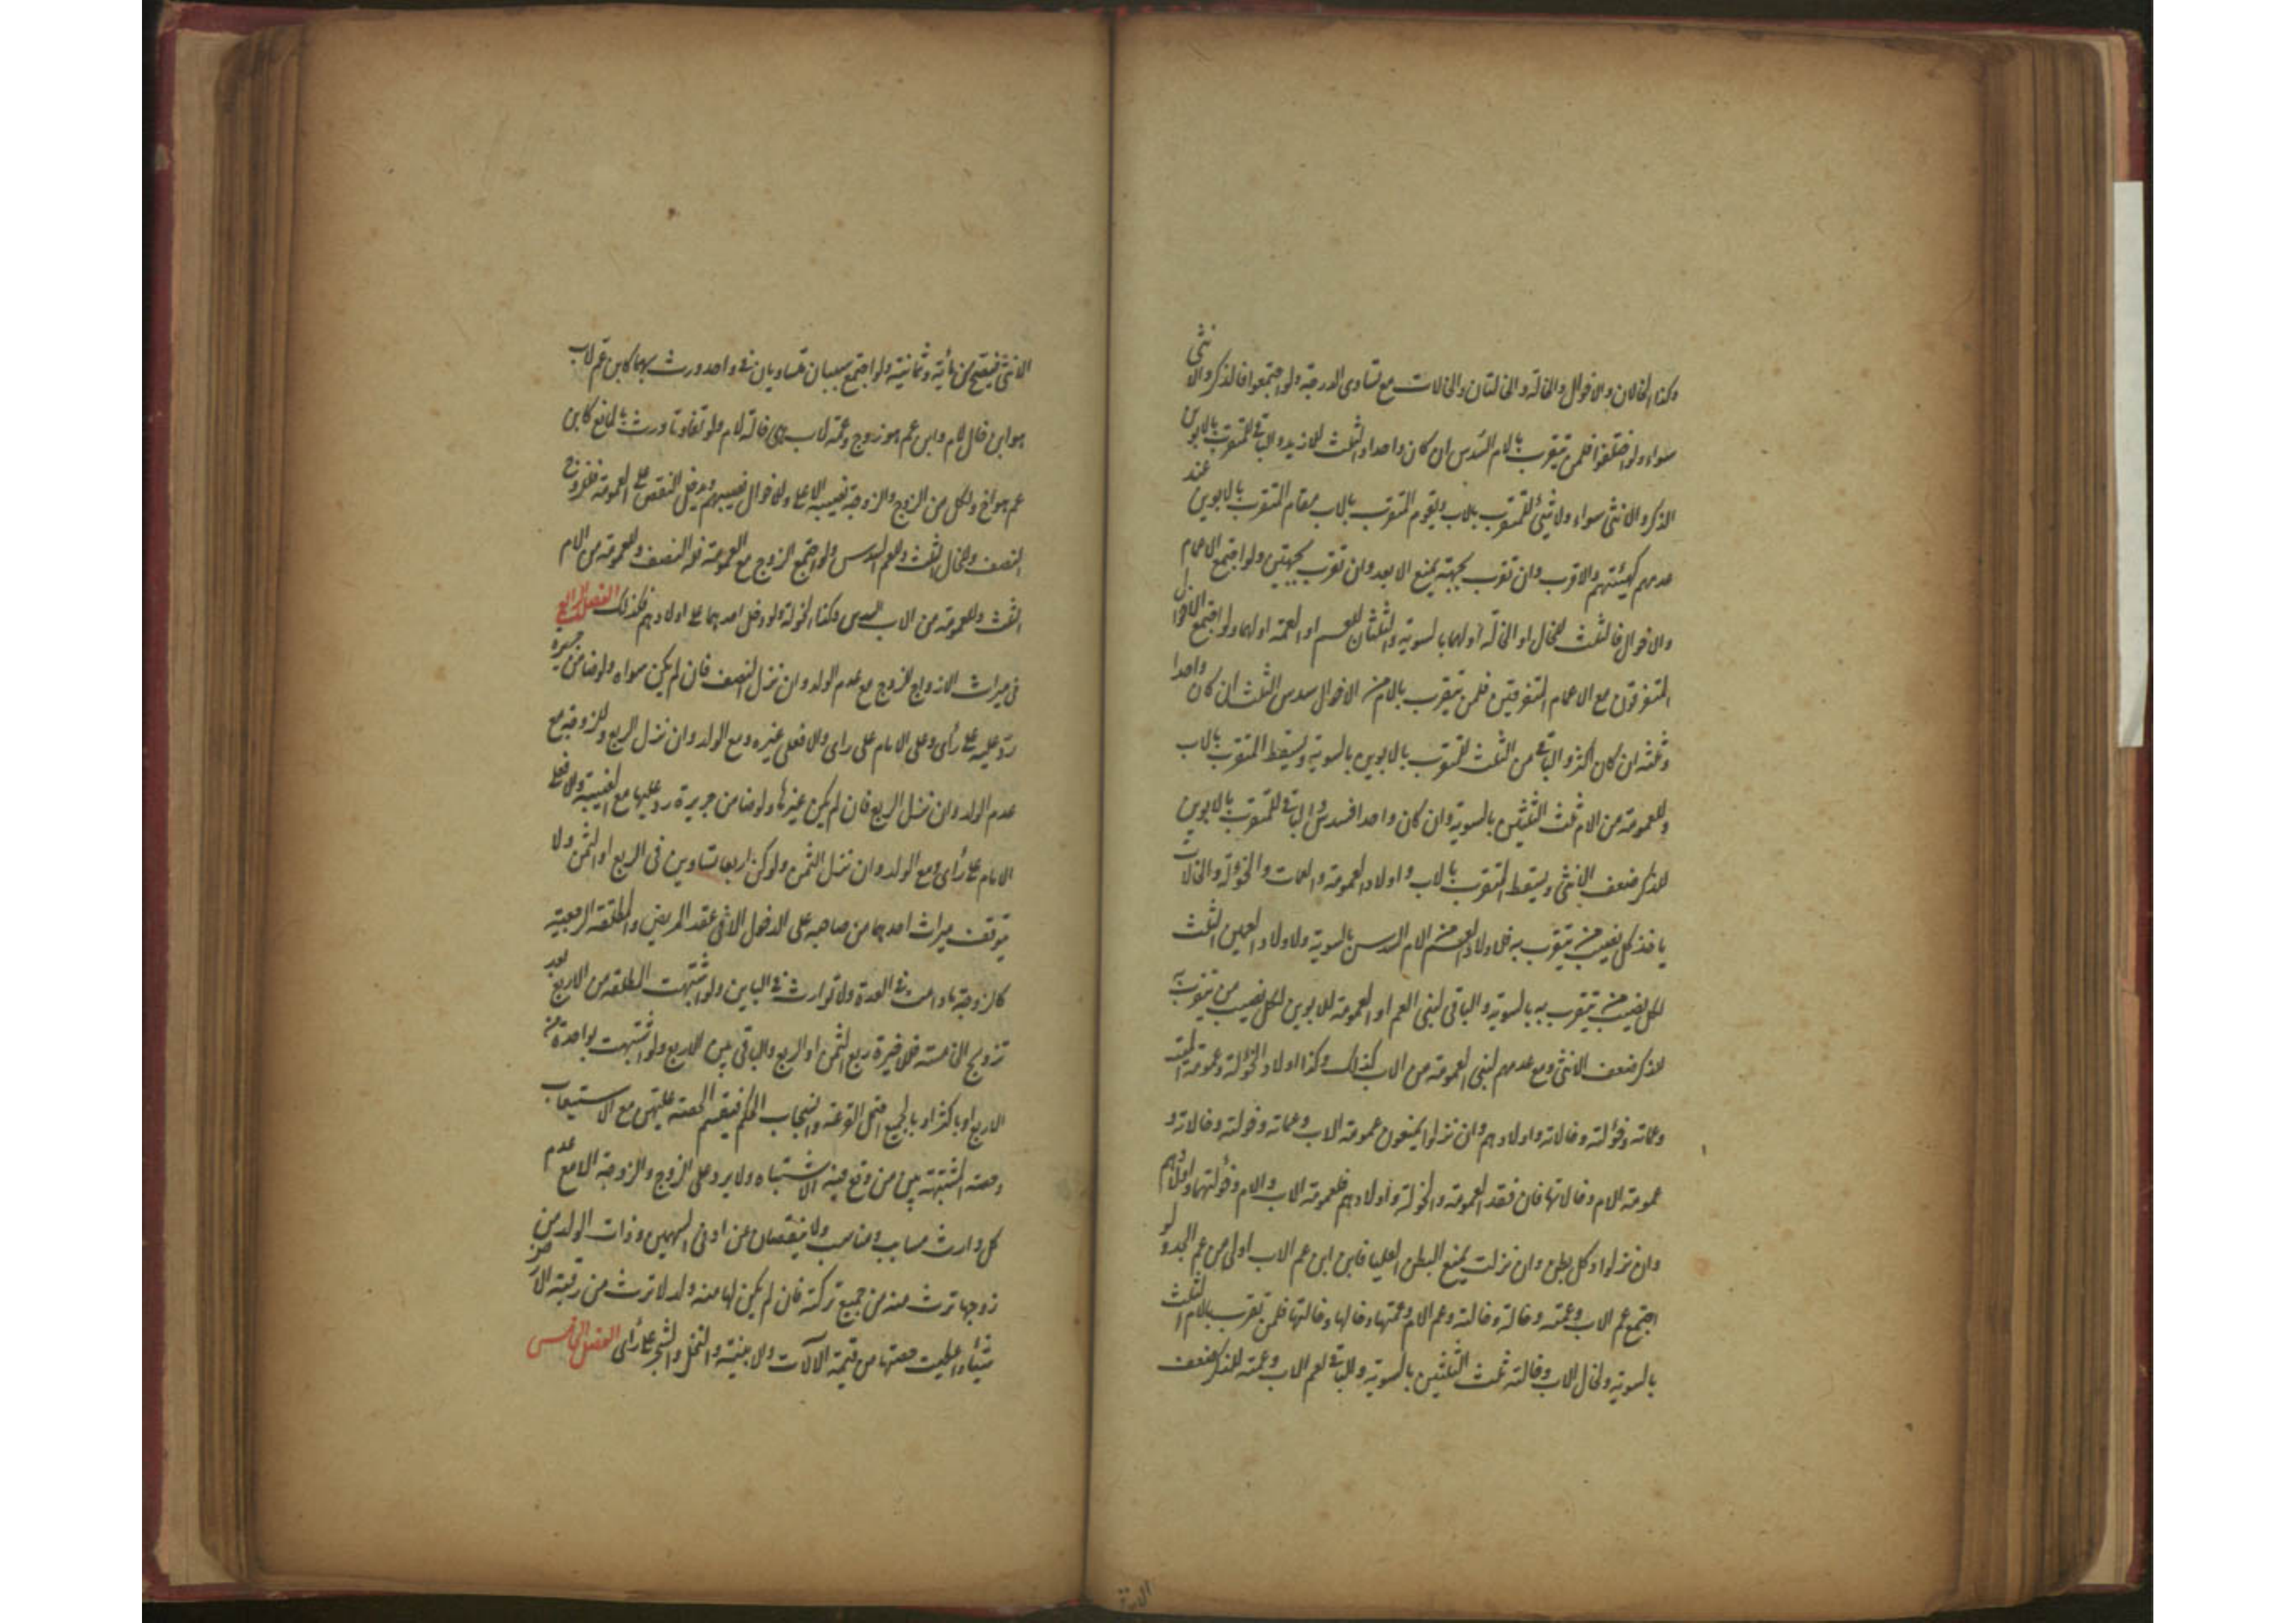 وكذا الخالان والاخوال والخالة والخالتان والخالات مع تساوى الدرجة ولو اجتمعوا فالذكر والانثى
سواء ولو اختلفوا فلمن يتقرب بالام السدس ان كان واحدا والثلث لازيد والباقى للمتقرب بالابوين
الذكر والانثى سواء ولا شئ للمتقرب بالاب ويقوم المتقرب بالاب مقام المتقرب بالابوين عند
عدمهم كهيئتهم والاقرب وان تقرب بجهة يمنع الابعد وان تقرب بجهتين ولو اجتمع الاعمام
والاخوال فالثلث للخال او الخالة او لهما بالسوية والثلثان للعم او العمة او لهما ولو اجتمع الاخوال
المتفرقون مع الاعمام المتفرقين فلمن يتقرب بالام من الاخوال سدس الثلث ان كان واحدا
وثلثه ان كان اكثر والباقى من الثلث للمتقرب بالابوين بالسوية ويسقط المتقرب بالاب
وللعمومة من الام ثلث الثلثين بالسوية وان كان واحدا فسدس والباقى للمتقرب بالابوين
للذكر ضعف الانثى ويسقط المتقرب بالاب واولاد العمومة والعمات والخؤلة والخالات
ياخذ كل نصيب من يتقرب به فلاولاد العم من الام السدس بالسوية ولاولاد العمين الثلث
لكل نصيب من يتقرب به بالسوية والباقى لبنى العم او العمومة للابوين لكل نصيب من يتقرب به
للذكر ضعف الانثى ومع عدمهم لبنى العمومة من الاب كذلك وكذا اولاد الخؤلة وعمومة الميت
وعماته وخؤلته وخالاته واولادهم وان نزلوا يمنعون عمومة الاب وعماته وخولته وخالاته و
عمومة الام وخالاتها فان فقد العمومة والخولة واولادهم فلعمومة الاب والام وخؤلتهما واولادهم
وان نزلوا وكل بطن وان نزلت يمنع البطن العليا فابن ابن عم الاب اولى من عم الجد ولو
اجتمع عم الاب وعمته وخاله وخالته وعم الام وعمتها وخالها وخالتها فلمن تقرب بالام الثلث
بالسوية ولخال الاب وخالته ثلث الثلثين بالسوية والباقى لعم الاب وعمته للذكر ضعف
الانثى فيصح من مأية وثمانية ولو اجتمع سببان متساويان فى واحد ورث بهما كابن عم لاب
هو ابن خال لام وابن عم هو زوج وعمة لاب هى خالة لام ولو تفاوتا ورث بالمانع كابن
عم هو اخ ولكل من الزوج والزوجة نصيبه الاعلى وللاخوال نصيبهم ويدخل النقص على العمومة فلزوج
النصف وللخال الثلث وللعم السدس ولو اجتمع الزوج مع العمومة فله النصف وللعمومة من الام
الثلث وللعمومة من الاب السدس وكذا الخولة ولو دخل احدهما على اولادهم فكذلك الفصل الرابع
فى ميراث الازواج للزوج مع عدم الولد وان نزل النصف فان لم يكن سواه ولو ضامن جريرة
رد عليه على رأى وعلى الامام على راى والا فعلى غيره ومع الولد وان نزل الربع وللزوجة مع
عدم الولد وان نزل الربع فان لم يكن غيرها ولو ضامن جريرة رد عليها مع الغيبة والا فعلى
الامام على رأى ومع الولد وان نزل الثمن ولو كن اربعا تساوين فى الربع او الثمن ولا
يتوقف ميراث احدهما من صاحبه على الدخول الا فى عقد المريض والمطلقة الرجعية
كالزوجة ما دامت فى العدة ولا توارث فى الباين ولو اشتبهت المطلقة من الاربع بعد
تزويج الخامسة فللاخيرة ربع الثمن او الربع والباقى بين الاربع ولو اشتبهت بواحدة من
الاربع او باكثر او بالجميع احتمل القرعة وانسحاب الحكم فيقسم الحصة عليهن مع الاستيعاب
وحصة المشتبهة بين من وقع فيه الاشتباه ولا يرد على الزوج والزوجة الا مع عدم
كل وارث مسابب ومناسب ولا ينقصان عن ادنى السهمين وذات الولد من
زوجها ترث منه من جميع تركته فان لم يكن لها منه ولد لا ترث من رقبة الارض
شيئا واعطيت حصتها من قيمة الآلات والابنية والنخل والشجر على رأى الفصل الخامس